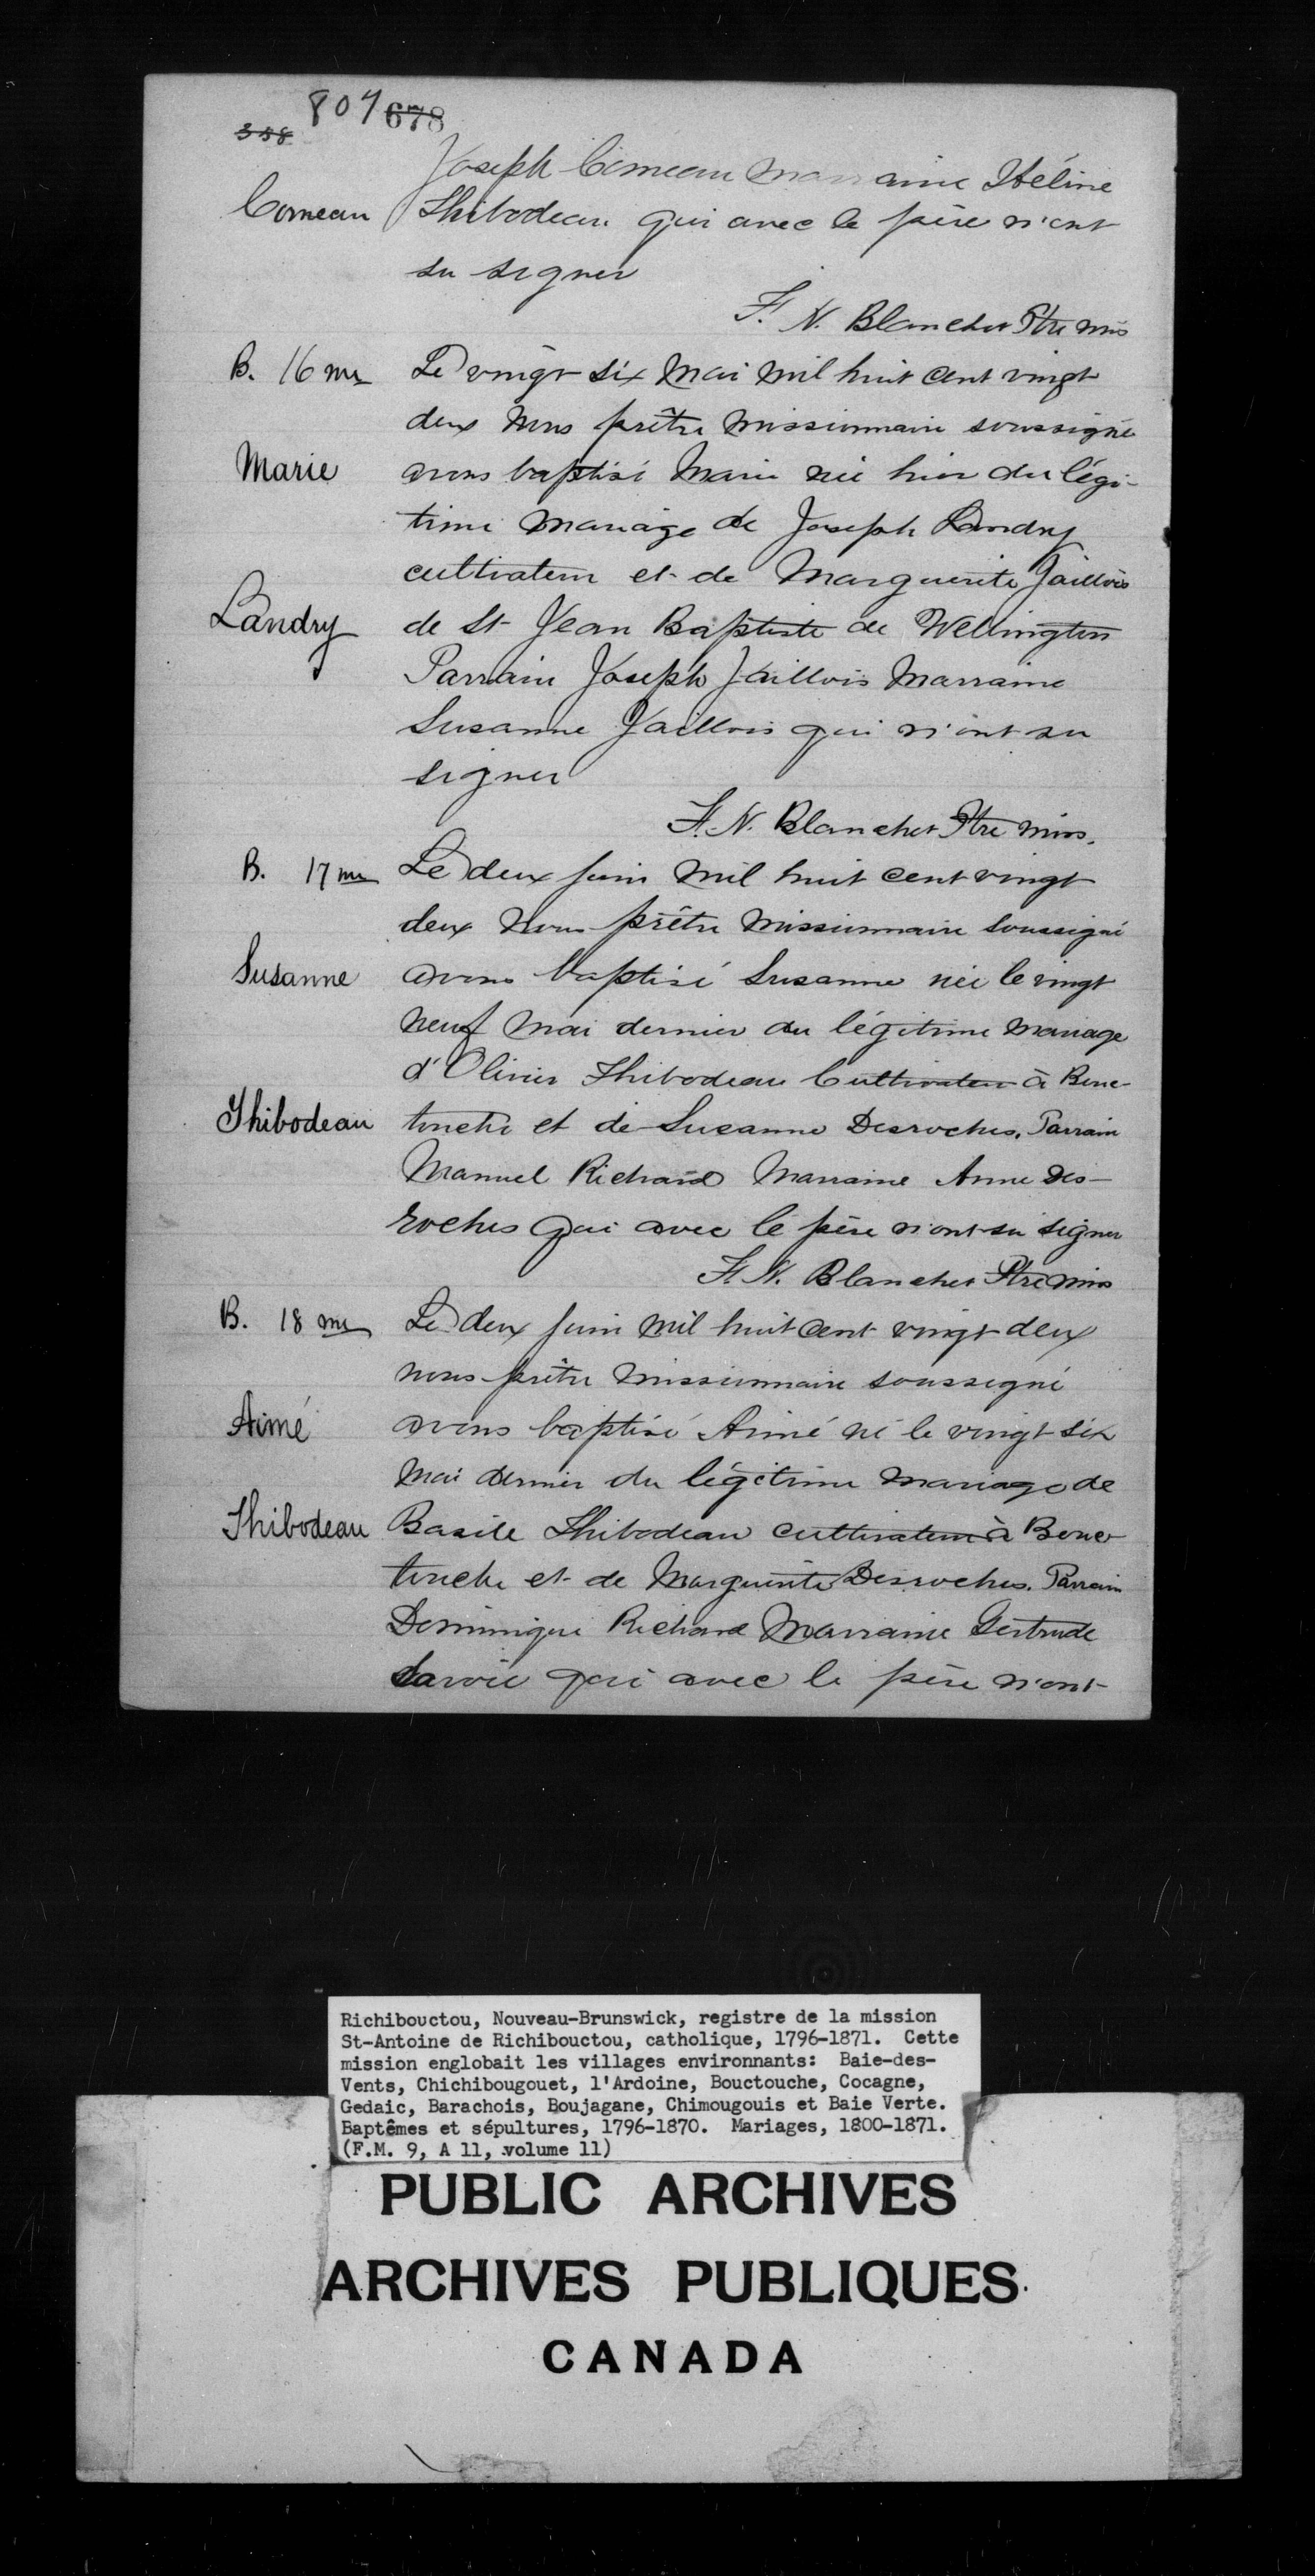 807 678
358
Joseph Comeau Marraine Héline
Comeau Thibodeau qui avec le père n'ont
su signer
F. N. Blanchet Ptre mis
B. 16 me Le vingt six Mai Mil huit cent vingt
deux Nous prêtre Missionnaire soussigné
Marie avons baptisé Marie née hier du légi-
time Mariage de Joseph Landry
cultivateur et de Marguerite Jaillois
Landry de St Jean Baptiste de Wellington
Parrain Joseph Jaillois Marraine
Susanne Jaillois qui n'ont su
signer
F. N. Blanchet Ptre miss.
B. 17 me Le deux juin Mil huit cent vingt
deux Nous prêtre Missionnaire soussigné
Susanne avons baptisé Susanne née le vingt
neuf Mai dernier du légitime Mariage
d'Olivier Thibodeau Cultivateur à Bouc-
Thibodeau touche et de Susanne Desroches. Parrain
Manuel Richard Marraine Anne Des-
roches qui avec le père n'ont su signer
F. N. Blanchet Ptre Miss
B. 18 me Le deux juin mil huit cent vingt deux
nous prêtre Missionnaire soussigné
Aimé avons baptisé Aimé né le vingt six
Mai dernier du légitime Mariage de
Thibodeau Basile Thibodeau cultivateur à Bouc
touche et de Marguerite Desroches. Parrain
Dominique Richard Marraine Gertrude
Savoie qui avec le père n'ont
Richibouctou, Nouveau-Brunswick, registre de la mission
St-Antoine de Richibouctou, catholique, 1796-1871. Cette
mission englobait les villages environnants: Baie-des-
Vents, Chichibougouet, l'Ardoine, Bouctouche, Cocagne,
Gedaic, Barachois, Boujagane, Chimougouis et Baie Verte.
Baptêmes et sépultures, 1796-1870. Mariages, 1800-1871.
(F.M. 9, A 11, volume 11)
PUBLIC ARCHIVES
ARCHIVES PUBLIQUES
CANADA